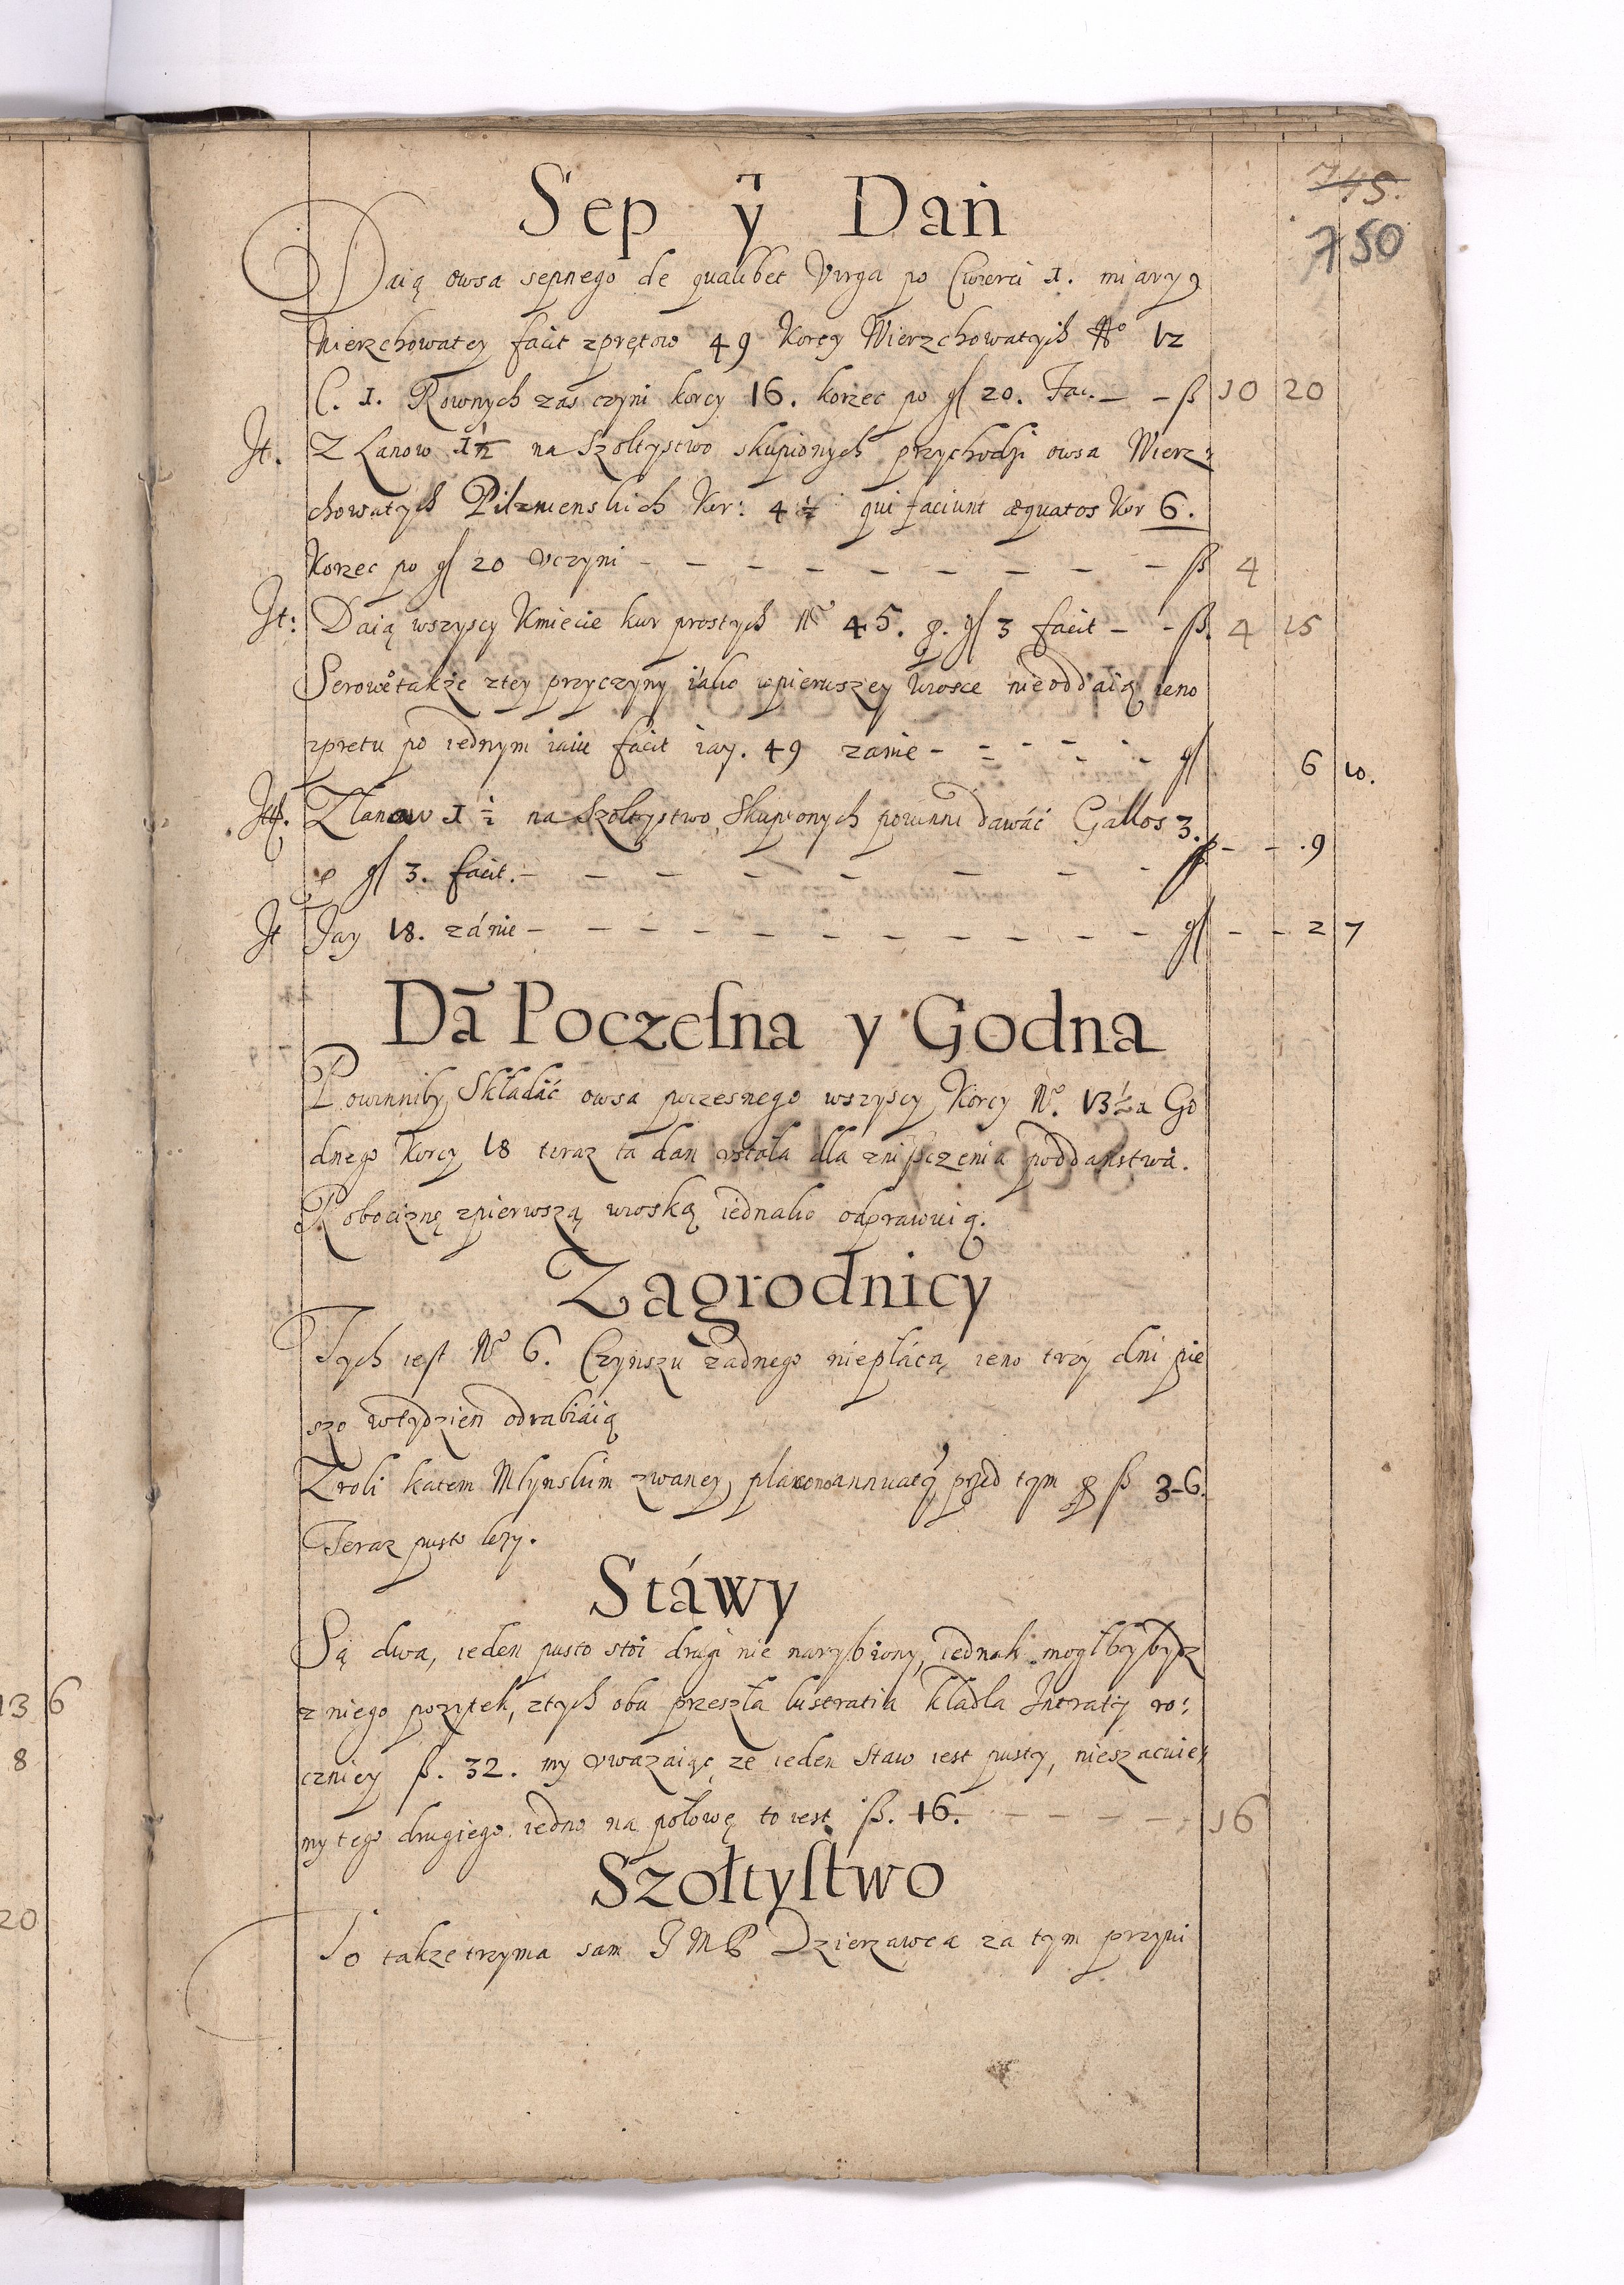 745.
750
Sep ÿ Dań
Daią owsa sepnego de qualibet Virga po Cwierci 1. miary
Wierzchowatey facit zprętow 49 Korcy Wierzchowatych No 12
C. 1. Rownych zas czyni korcy 16. korzec po gſ 20. Fac. – – ß 10 20
Jt. Z Łanow 1½ na Szołtystwo skupionych przychodzi owsa Wierz-
chowatych Pilznienskich Kor: 4½ qui faciunt æquatos Kor 6.
Korzec po gſ 20 Vczyni – – – – – – – – – ß 4
Jt: Daią wszyscy Kmiecie kur prostych No 45. p. gſ 3 facit – – ß. 4 15
Serow także ztey przyczyny iako wpierwszey wosce nieoddaią ieno
zpretu po iednym iaiu facit iay. 49 zanie – – – – – gſ 6 10.
Jt. Złanow 1½ na Szołtystwo Skupionych powinni dawáć Gallos 3.
p gſ 3. facit. – – – – – – – – ß – – .9
Jt Jay 18. zánie – – – – – – – – – – gſ – – 2 7
Dā Poczeſna y Godna
Powinniby Składáć owsa poczesnego wszyscy Korcy No. 13½ a Go
dnego Korcy 18 teraz ta dan vstała dla znisczenia poddanstwá.
Robociznę zpierwszą wioską iednako odprawuią.
Zagrodnicy
Tych iest No 6. Czynszu żadnego niepłácą ieno trzy dni pie
szo wtydzień odrabiáią
Zroli kátem Młynskim zwaney, płacono annuatỹ przed tym p ß 3–6.
Teraz pusto leży.
Stáwy
Są dwa, ieden pusto stoi drugi nie narybiony, iednak mogłby bydz
z niego pożytek, ztych obu przeszła lustratia kładla Intraty ro:
czniey ß. 32. my vważaiąc, że ieden Staw iest pusty, nieszacuie-
my tego drugiego iedno na połowę to iest ß. 16. – – – – – 16
Szołtyſtwo
To także trzyma sam J M P Dzierzawca za tym przywi
13 6
8
20